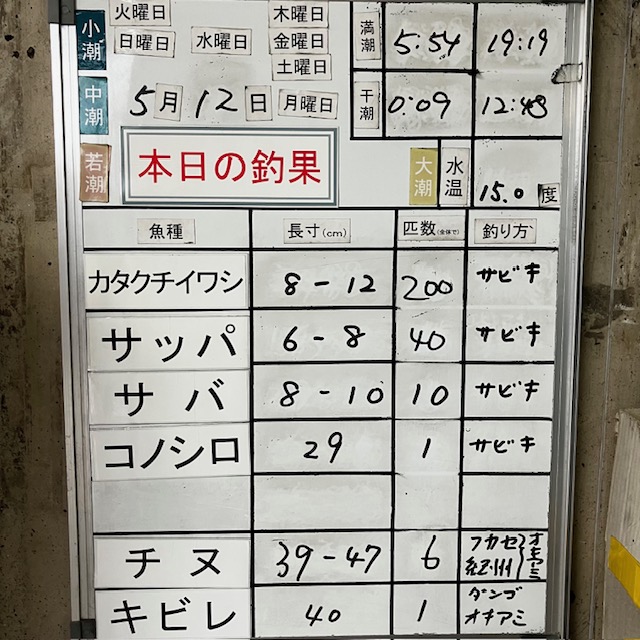 小潮 火曜日 木曜日 満潮 5:54 19:19
日曜日 水曜日 金曜日
土曜日
中潮 5月12日 月曜日 干潮 0:09 12:48
若潮 本日の釣果 大潮 水温 15.0度
魚種 長寸(cm) 匹数(全体で) 釣り方
カタクチイワシ 8-12 200 サビキ
サッパ 6-8 40 サビキ
サバ 8-10 10 サビキ
コノシロ 29 1 サビキ
チヌ 39-47 6 フカセ 紀州 オキアミ
キビレ 40 1 ダンゴ オキアミ